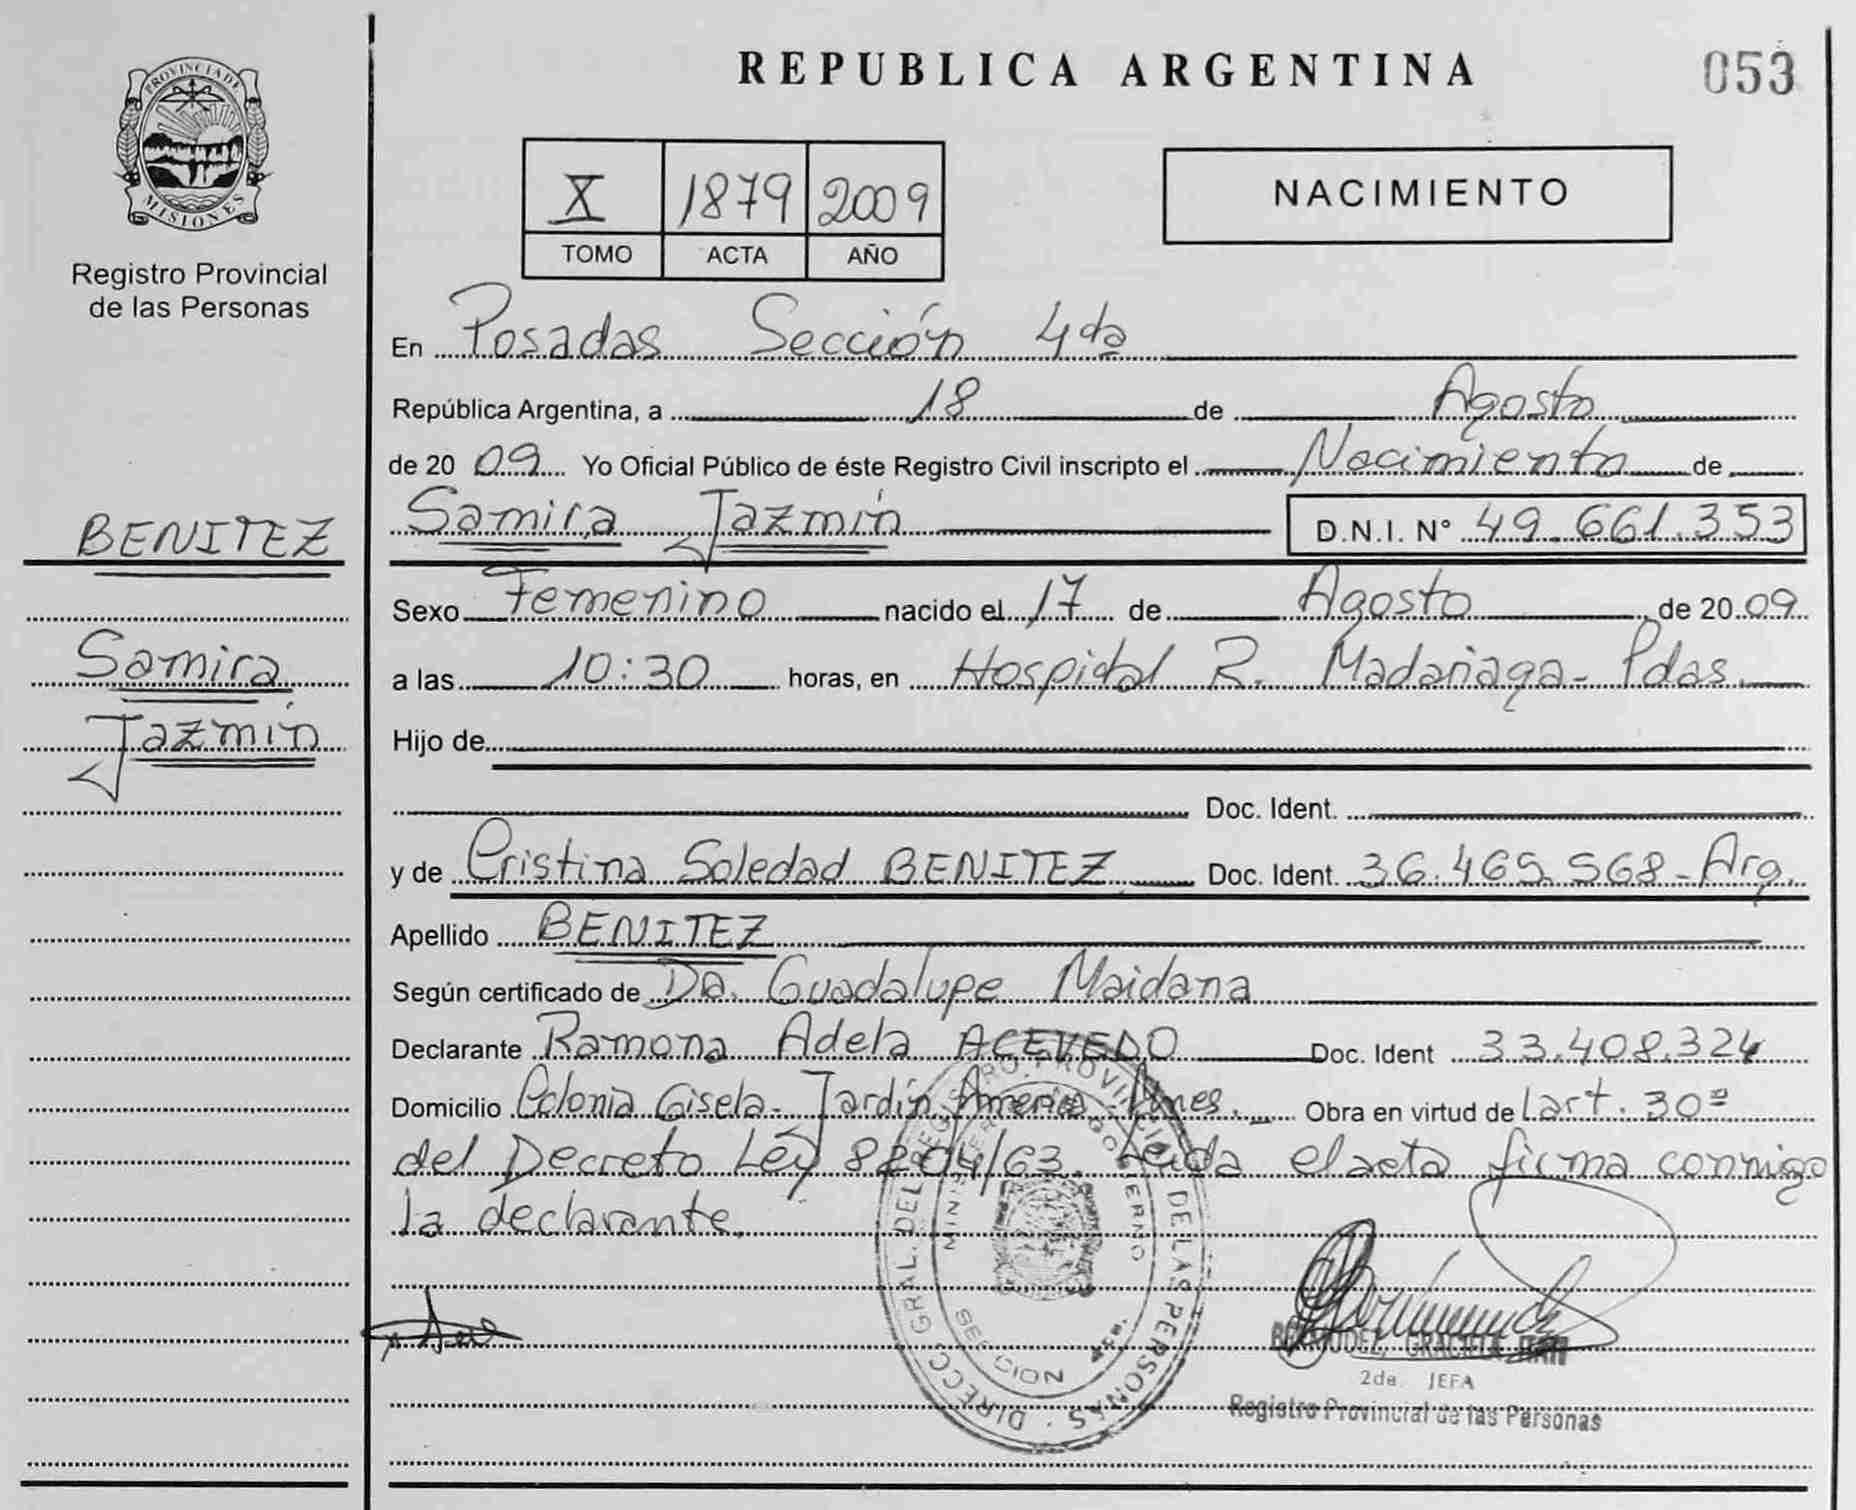 PROVINCIA DE
MISIONES
Registro Provincial
de las Personas
BENITEZ
Samira
Jazmín
REPUBLICA ARGENTINA
053
X 1879 2009
TOMO ACTA AÑO
NACIMIENTO
En Posadas Sección 4da
República Argentina, a 18 de Agosto
de 20 09 Yo Oficial Público de éste Registro Civil inscripto el Nacimiento de
Samira Jazmín D.N.I. N° 49.661.353
Sexo Femenino nacido el 17 de Agosto de 20 09
a las 10:30 horas, en Hospital R. Madariaga - Pdas.
Hijo de
Doc. Ident.
y de Cristina Soledad BENITEZ Doc. Ident. 36.465.568 - Arg.
Apellido BENITEZ
Según certificado de Da. Guadalupe Maidana
Declarante Ramona Adela ACEVEDO Doc. Ident 33.408.324
Domicilio Colonia Gisela - Jardín America - Obra en virtud de l art. 30º
del Decreto Ley 8204/63. Leida el acta firma conmigo
la declarante.
DIRECC. GRAL. DEL REGISTRO PROVINCIAL DE LAS PERSONAS
MINISTERIO DE GOBIERNO
SECCION 4ta.
BERMUDEZ, GRACIELA
2da. JEFA
Registro Provincial de las Personas